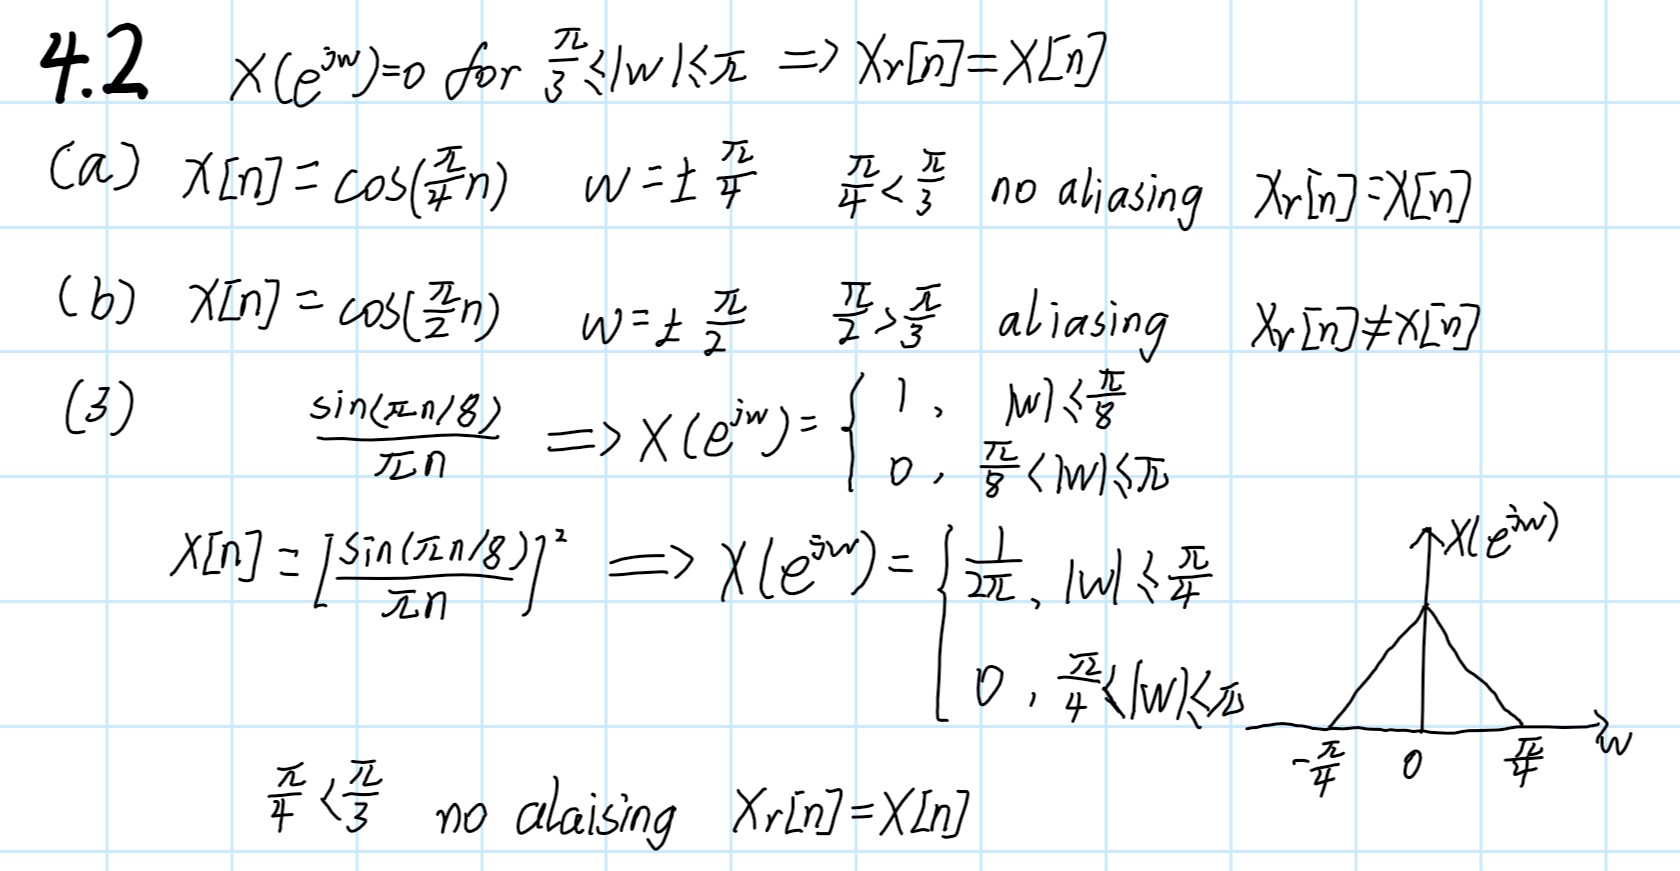 4.2 X(e^{jw})=0 for π/3≤|w|≤π => Xr[n]=X[n]
(a) X[n]=cos(π/4 n) w=±π/4 π/4<π/3 no aliasing Xr[n]=X[n]
(b) X[n]=cos(π/2 n) w=±π/2 π/2>π/3 aliasing Xr[n]≠X[n]
(3) sin(πn/8)/πn => X(e^{jw})={1, |w|≤π/8
0, π/8<|w|≤π
X[n]=[sin(πn/8)/πn]² => X(e^{jw})={1/2π, |w|≤π/4
0, π/4≤|w|≤π
X(e^{jw})
-π/4 0 π/4 w
π/4<π/3 no alaising Xr[n]=X[n]